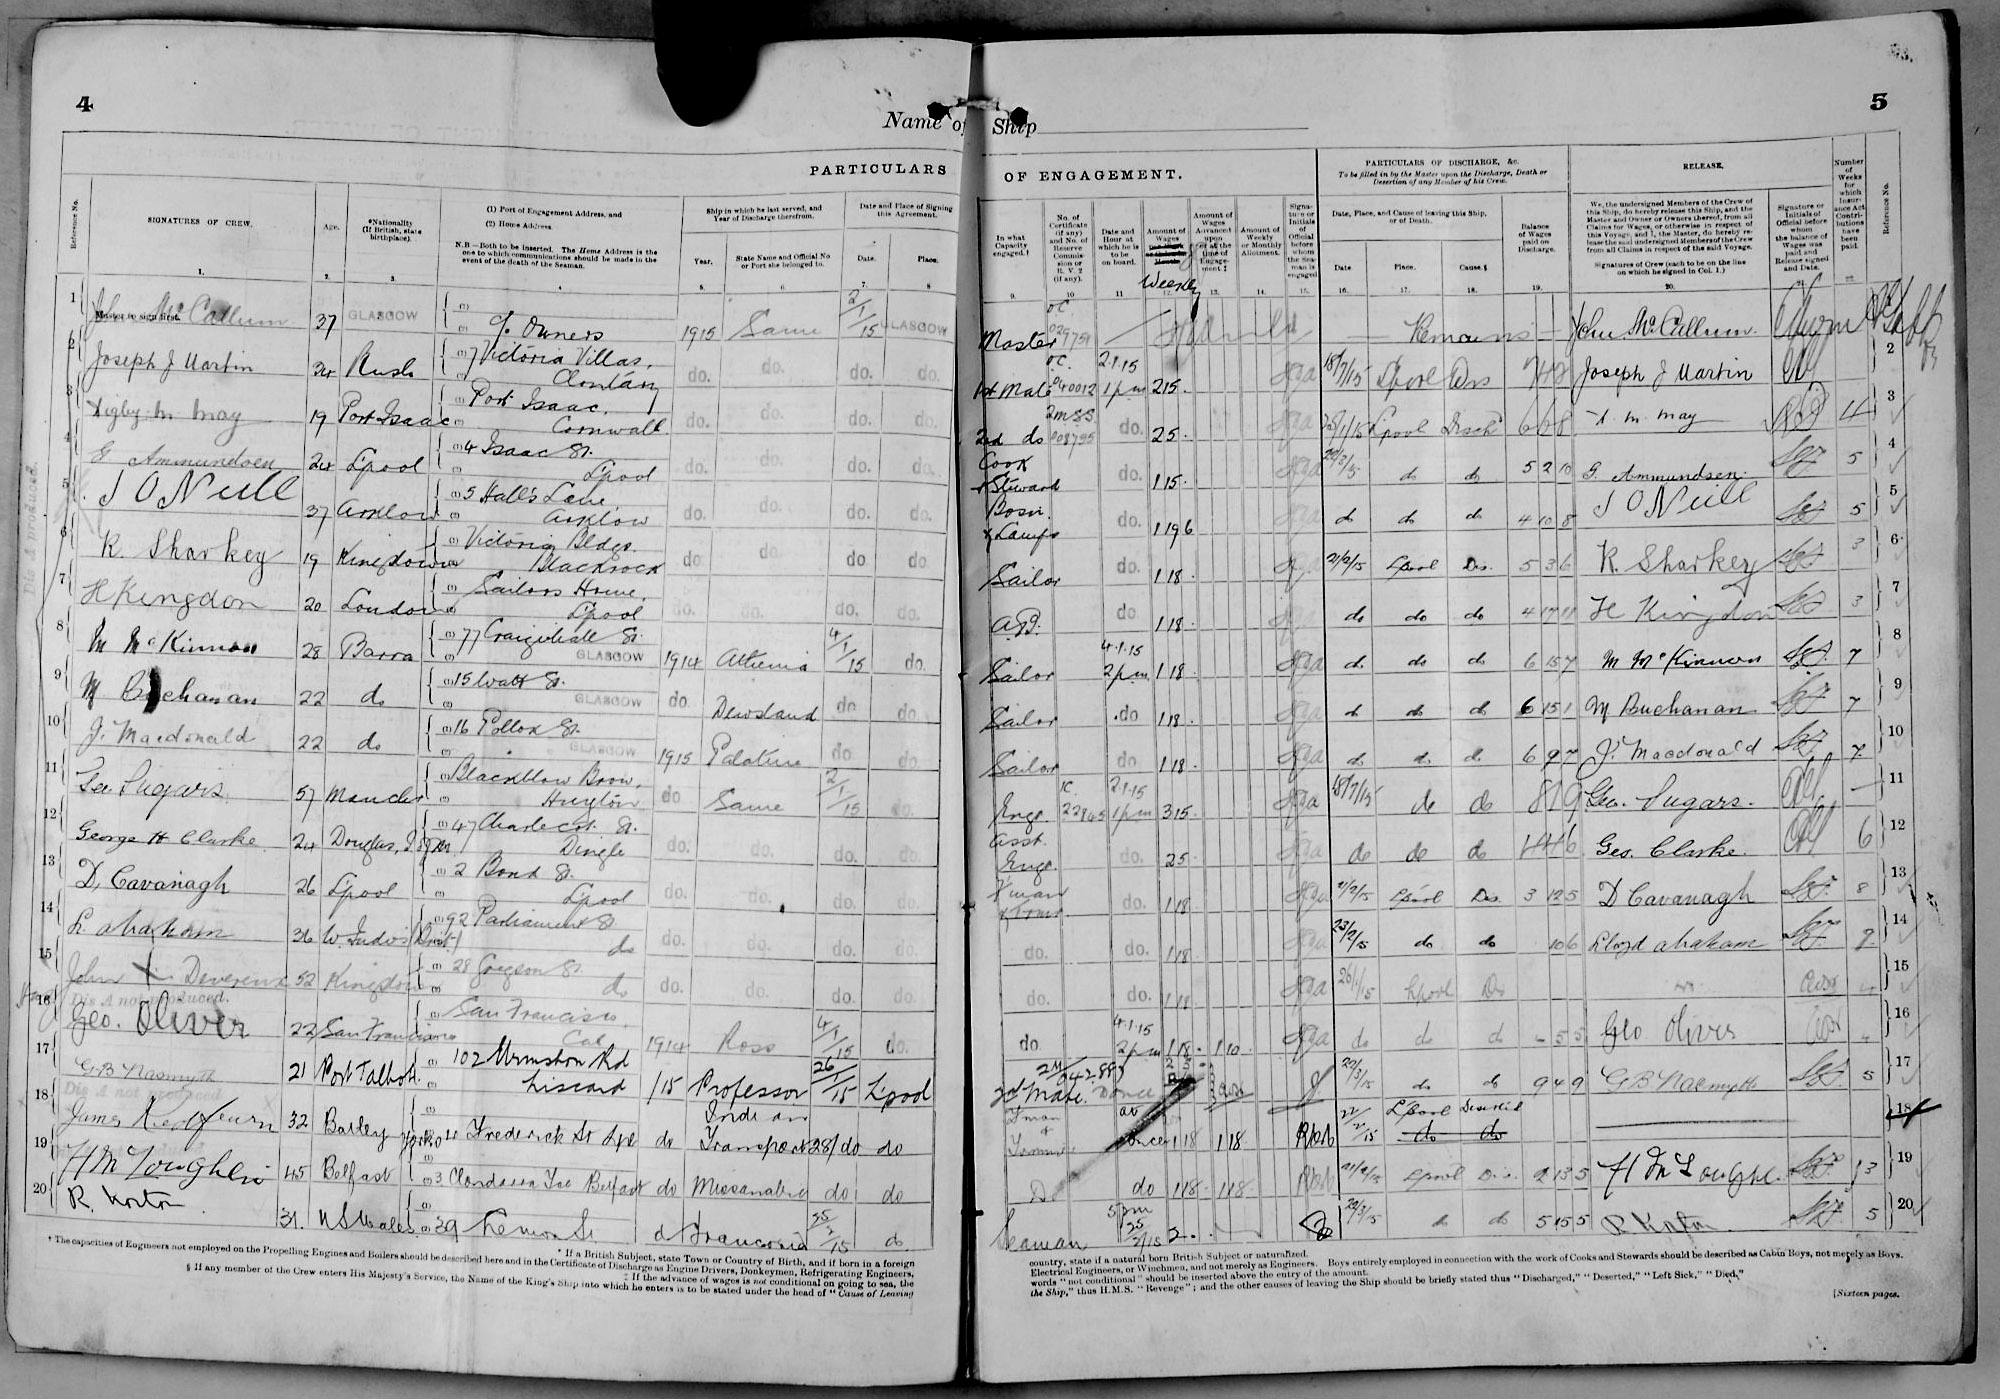 4
5
Name of Ship
PARTICULARS OF ENGAGEMENT.
PARTICULARS OF DISCHARGE, &c.
To be filled in by the Master upon the Discharge, Death or Desertion of any Member of his Crew.
RELEASE.
Number of Weeks for which Insurance Act Contributions have been paid.
Reference No.
SIGNATURES OF CREW.
Age.
*Nationality (If British, state birthplace).
(1) Port of Engagement Address, and
(2) Home Address.
N.B.—Both to be inserted. The Home Address is the one to which communications should be made in the event of the death of the Seaman.
Ship in which he last served, and Year of Discharge therefrom.
Year.
State Name and Official No or Port she belonged to.
Date and Place of Signing this Agreement.
Date.
Place.
In what Capacity engaged.†
No. of Certificate (if any) and No. of Reserve Commission or R. V. 2 (if any).
Date and Hour at which he is to be on board.
Amount of Wages
Weekly
Amount of Wages Advanced upon or at the time of Engagement.‡
Amount of Weekly or Monthly Allotment.
Signature or Initials of Official before whom the Seaman is engaged
Date, Place, and Cause of leaving this Ship, or of Death.
Date.
Place.
Cause.§
Balance of Wages paid on Discharge.
We, the undersigned Members of the Crew of this Ship, do hereby release this Ship, and the Master and Owner or Owners thereof, from all Claims for Wages, or otherwise in respect of this Voyage, and I, the Master, do hereby release the said undersigned Members of the Crew from all Claims in respect of the said Voyage.
Signatures of Crew (each to be on the line on which he signed in Col. 1.)
Signature or Initials of Official before whom the balance of Wages was paid and Release signed and Date.
Reference No.
1 John McCallum 37 GLASGOW Owners 1915 Same 2/1/15 GLASGOW Master Remains John McCallum
Master to sign first.
2 Joseph J Martin 34 Rush 7 Victoria Villas, do. do. do. do. 1st Mate 040012 2.1.15 1 pm 215. 18/7/15 Lpool Dis Joseph J Martin 2
3 Digby M May 19 Port Isaac Port Isaac, Cornwall do. do. do. do. 2nd do 25. Lpool Disch 668 4 3
4 G Ammundsen 24 L'pool 4 Isaac St. L'pool do. do. do. do. Cook & Steward do. 115. do do 5 2 10 G. Ammundsen 5 4
5 J O Neill 37 Arklow 5 Hall's Lane, Arklow do. do. do. do. Bosn. & Lamps do. 1196 do do do 4 10 8 J O Neill 5 5
6 R. Sharkey 19 Kingstown Victoria Bldgs. Blackrock do. do. do. do. Sailor do. 118. 21/2/15 Lpool Dis. 5 3 6 R. Sharkey 3 6
7 H Kingdon 20 London Sailors Home, L'pool do. do. do. do. A.B. do 118. do do do 4 17 11 H Kingdon 3 7
8 M McKinnon 28 Barra 77 Craigiehall St. GLASGOW 1914 Athenia 4/1/15 do. Sailor 4.1.15 2 pm 118 do do do 6 15 7 M McKinnon 7 8
9 M Buchanan 22 do 15 Watt St. GLASGOW do. do do. Sailor do 118. do do do 6 15 1 M Buchanan 7 9
10 J. Macdonald 22 do 16 Pollok St. GLASGOW 1915 Palatine do do Sailor do 118. do do do 6 9 7 J. Macdonald 7 10
11 Geo Sugars 57 Manchr Huyton do Same 2/1/15 do. Engr. 22845 2.1.15 1 pm 315. 18/7/15 do do 819 Geo. Sugars. 11
12 George H Clarke 24 Douglas, I of Man 47 Charlecot St. Dingle do. do. do. do. Asst. Engr. do. 25. do do do Geo. Clarke. 6 12
13 D, Cavanagh 26 L'pool 2 Bond St. L'pool do. do. do. do. do. 118 21/2/15 Lpool Dis. 3 12 5 D Cavanagh 8 13
14 L. Abraham 36 W. Indies 92 Parliament St do do. do. do. do. do. do. 118. 23/2/15 do do 10 6 Lloyd Abraham 14
15 John X Devereux 52 28 Gregson St. do do. do. do. do. do. do. 118 26/1/15 Lpool Ds 15
Dis A not produced.
16 Geo. Oliver 22 San Francisco San Francisco, Cal 1914 Ross 4/1/15 do. do. 4.1.15 2 pm 118. 110. do do do 5 5 Geo Oliver 16
17 G B Nasmyth 21 Port Talbot. 102 Urmston Rd Liscard /15 Professor 26/1/15 L'pool 2d Mate. 042889 do do 9 4 9 G B Nasmyth 5 17
Dis A not produced
18 James Redfearn 32 Frederick St Lpl do Indian Transport 28/do do at once 118 118 22/2/15 Lpool do do 18
19 H McLoughlin 45 Belfast Belfast do Missanabie do do Do do 118. 118. 21/2/15 Lpool Dis. 2 13 5 H McLoughlin 3 19
20 R Norton 31. N S Wales 39 Lemon St Franconia do. Seaman 5 pm 2. do do 5 15 5 R Norton 5 20
† The capacities of Engineers not employed on the Propelling Engines and Boilers should be described here and in the Certificate of Discharge as Engine Drivers, Donkeymen, Refrigerating Engineers,
* If a British Subject, state Town or Country of Birth, and if born in a foreign
‡ If the advance of wages is not conditional on going to sea, the
§ If any member of the Crew enters His Majesty's Service, the Name of the King's Ship into which he enters is to be stated under the head of "Cause of Leaving
country, state if a natural born British Subject or naturalized.
Electrical Engineers, or Winchmen, and not merely as Engineers. Boys entirely employed in connection with the work of Cooks and Stewards should be described as Cabin Boys, not merely as Boys.
words "not conditional" should be inserted above the entry of the amount.
the Ship," thus H.M.S. "Revenge"; and the other causes of leaving the Ship should be briefly stated thus "Discharged," "Deserted," "Left Sick," "Died,"
[Sixteen pages.